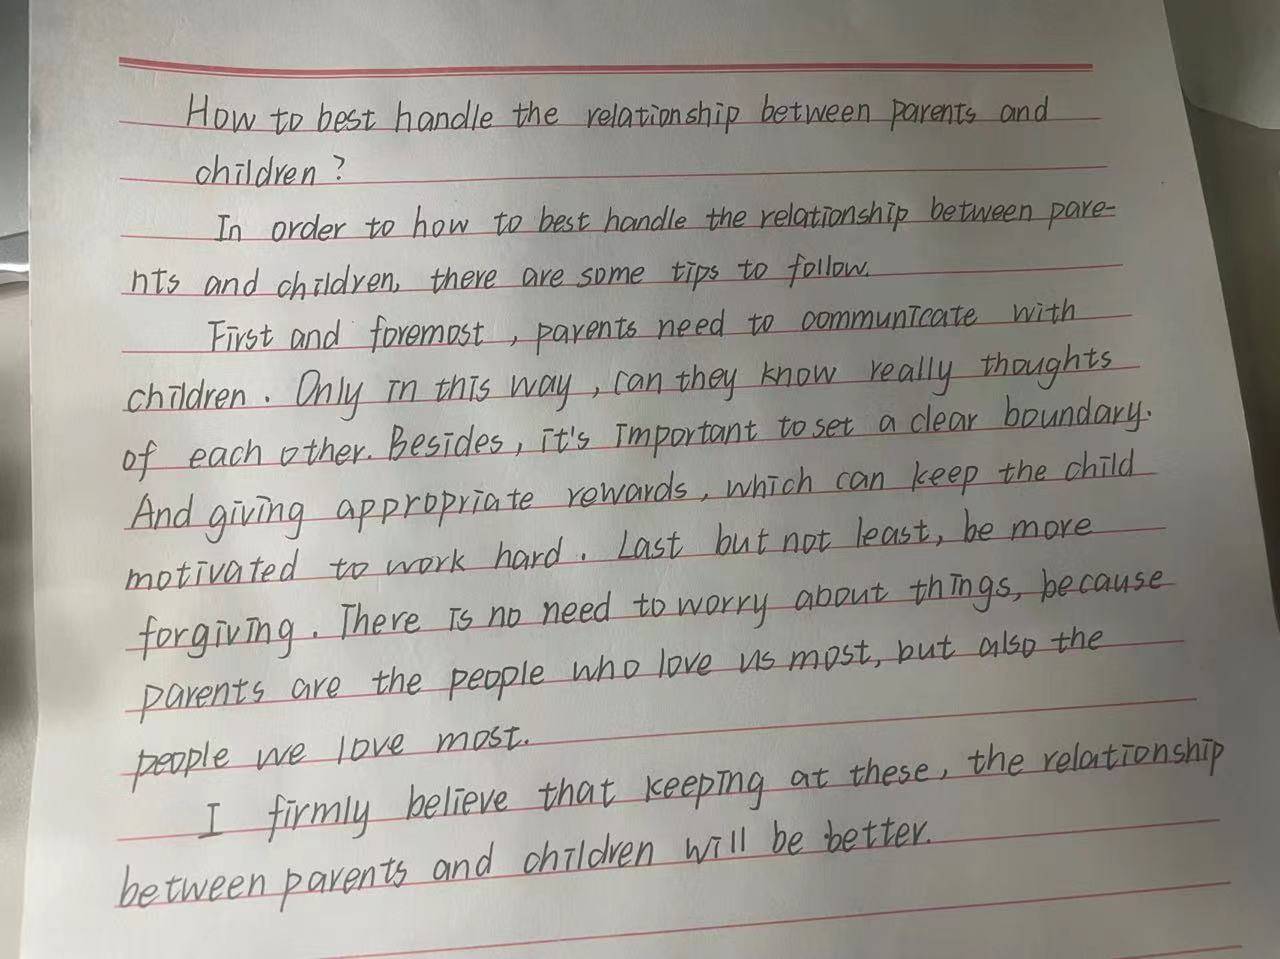 How to best handle the relationship between parents and
children?
In order to how to best handle the relationship between pare-
nts and children, there are some tips to follow.
First and foremost, parents need to communicate with
children. Only in this way, can they know really thoughts
of each other. Besides, it's important to set a clear boundary.
And giving appropriate rewards, which can keep the child
motivated to work hard. Last but not least, be more
forgiving. There is no need to worry about things, because
parents are the people who love us most, but also the
people we love most.
I firmly believe that keeping at these, the relationship
between parents and children will be better.